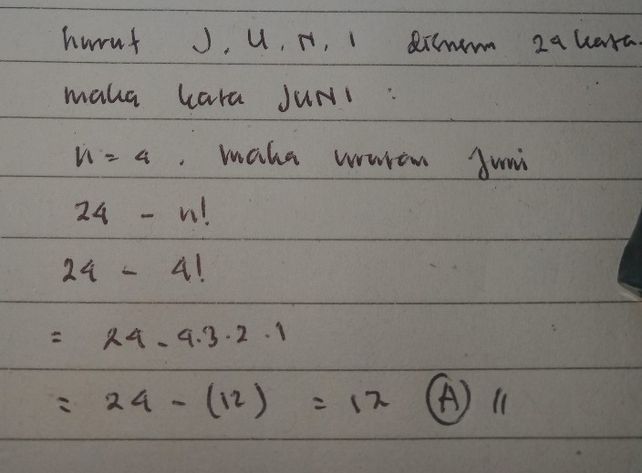 huruf J, U, N, I disusun 24 kata.
maka kata JUNI :
n = 4 . maka urutan Juni
24 - n!
24 - 4!
= 24 - 4.3.2.1
= 24 - (12) = 12 (A) //